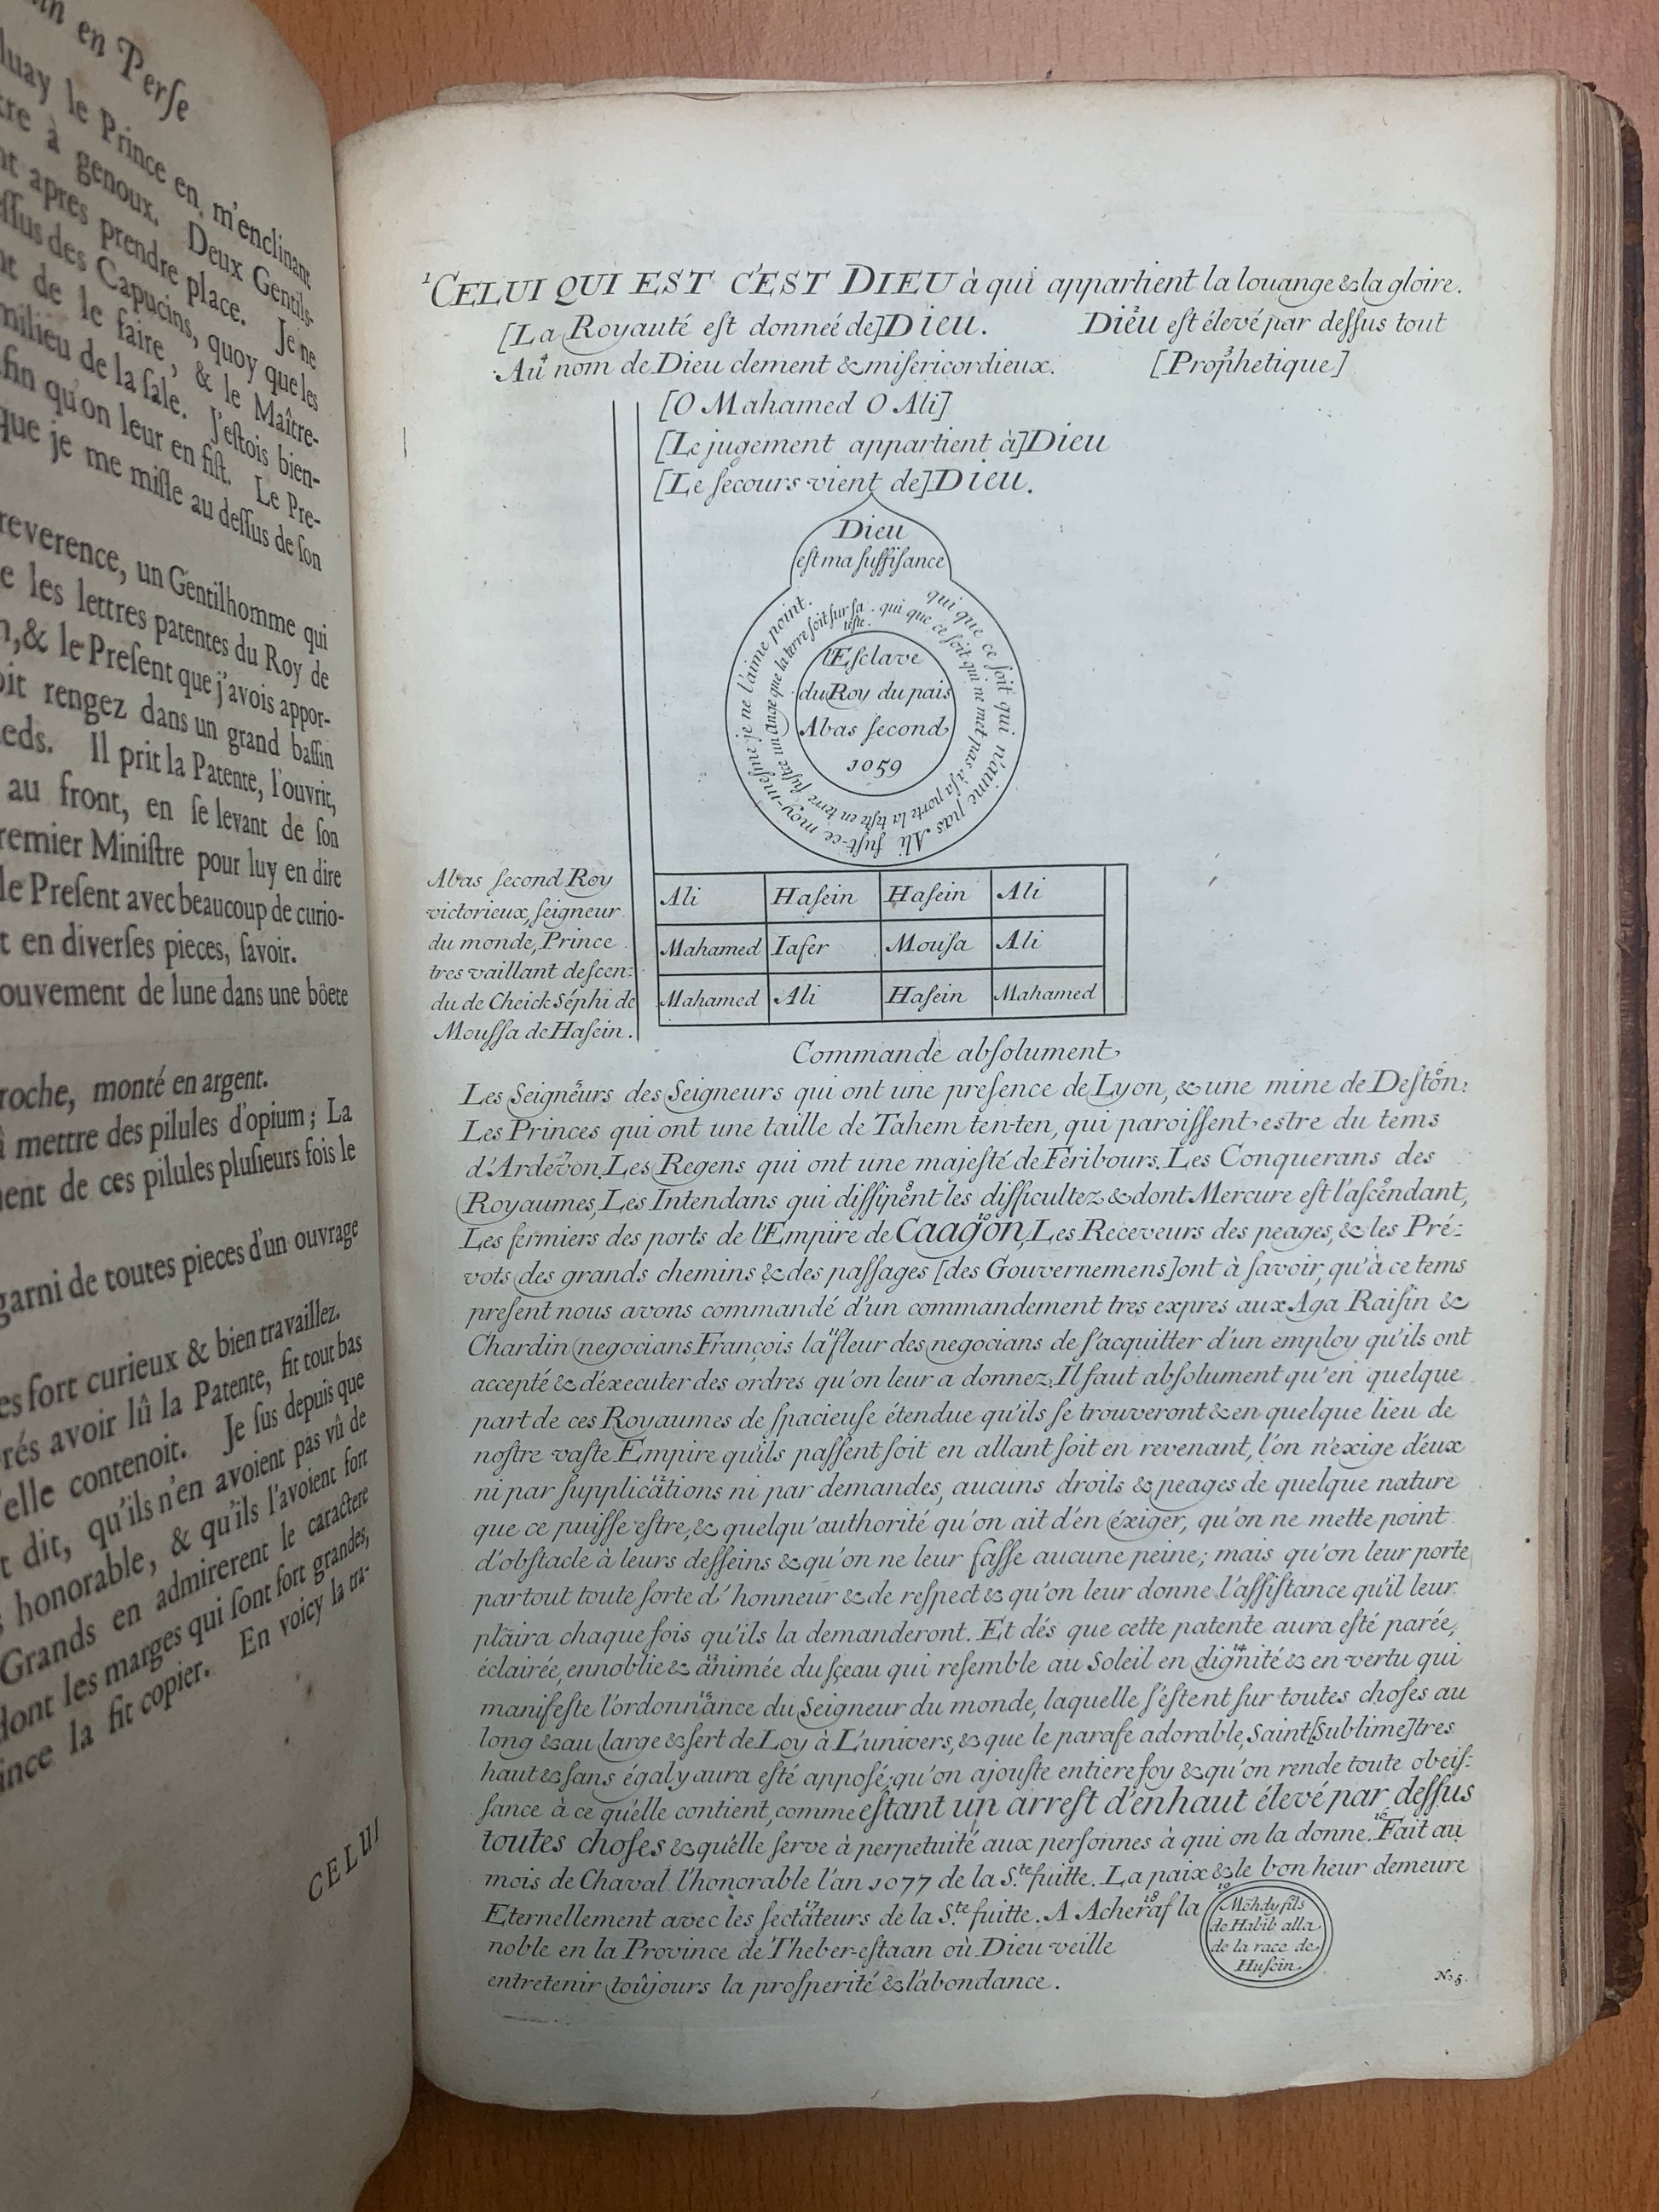 en Perse
luay le Prince en m'enclinant
tre à genoux. Deux Gentils-
nt apres prendre place. Je ne
essus des Capucins, quoy que les
nt de le faire, & le Maître-
milieu de la sale. J'estois bien-
fin qu'on leur en fist. Le Pre-
que je me misse au dessus de son
reverence, un Gentilhomme qui
e les lettres patentes du Roy de
n, & le Present que j'avois appor-
oit rengez dans un grand bassin
eds. Il prit la Patente, l'ouvrit,
au front, en se levant de son
remier Ministre pour luy en dire
le Present avec beaucoup de curio-
t en diverses pieces, savoir.
ouvement de lune dans une böete
roche, monté en argent.
à mettre des pilules d'opium; La
nent de ces pilules plusieurs fois le
garni de toutes pieces d'un ouvrage
es fort curieux & bien travaillez.
rés avoir lû la Patente, fit tout bas
'elle contenoit. Je sus depuis que
t dit, qu'ils n'en avoient pas vû de
honorable, & qu'ils l'avoient fort
Grands en admirerent le caractere
dont les marges qui sont fort grandes,
ince la fit copier. En voicy la tra-
CELUI
1 CELUI QUI EST C'EST DIEU à qui appartient la louange & la gloire.
[La Royauté est donneé de] DIEU. DIEU 2 est élevé par dessus tout
Au 4 nom de Dieu clement & misericordieux. [Prophetique] 3
[O Mahamed O Ali]
[Le jugement appartient à] DIEU
[Le secours vient de] DIEU.
Dieu
est ma suffisance
qui que ce soit qui n'aime pas Ali fust-ce moy-mesme je ne l'aime point.
qui que ce soit qui ne met pas à sa porte la teste en terre fustce un Ange que la terre soit sur sa teste.
l'Esclave
du Roy du pais
Abas second
1059
Abas second Roy
victorieux, seigneur
du monde, Prince
tres vaillant descen-
du de Cheick Séphi de
Moussa de Hasein.
Ali Hasein Hasein Ali
Mahamed Iafer Mousa Ali
Mahamed Ali Hasein Mahamed
Commande absolument
Les Seigneurs 5 des Seigneurs qui ont une presence de Lyon, & une mine de Deston: 6
Les Princes qui ont une taille de Tahem ten-ten, qui paroissent estre du tems
d'Ardevon 7. Les Regens qui ont une majesté de Feribours. Les Conquerans des
Royaumes, Les Intendans qui dissipent 8 les difficultez & dont Mercure est l'ascendant 9,
Les fermiers des ports de l'Empire de Caagon 10, Les Receveurs des peages, & les Pré-
vots des grands chemins & des passages [des Gouvernemens] ont à savoir, qu'à ce tems
present nous avons commandé d'un commandement tres expres aux Aga Raisin &
Chardin negocians François la 11 fleur des negocians de s'acquitter d'un employ qu'ils ont
accepté & d'éxecuter des ordres qu'on leur a donnez. Il faut absolument qu'en quelque
part de ces Royaumes de spacieuse étendue qu'ils se trouveront & en quelque lieu de
nostre vaste Empire qu'ils passent soit en allant soit en revenant, l'on n'exige d'eux
ni par supplications 12 ni par demandes, aucuns droits & peages de quelque nature
que ce puisse estre, & quelqu'authorité qu'on ait d'en éxiger, qu'on ne mette point
d'obstacle à leurs desseins & qu'on ne leur fasse aucune peine; mais qu'on leur porte
partout toute sorte d'honneur & de respect & qu'on leur donne l'assistance qu'il leur
plaira chaque fois qu'ils la demanderont. Et dés que cette patente aura esté parée,
éclairée, ennoblie & animée 13 du sçeau qui resemble au Soleil en dignité 14 & en vertu qui
manifeste l'ordonnance 15 du Seigneur du monde, laquelle s'estent sur toutes choses au
long & au large & sert de Loy à L'univers, & que le parafe adorable, Saint [Sublime] tres
haut & sans égal y aura esté apposé; qu'on ajouste entiere foy & qu'on rende toute obeis-
sance à ce qu'elle contient, comme estant un arrest d'enhaut élevé par dessus
toutes choses & qu'elle serve à perpetuité aux personnes à qui on la donne. 16 Fait au
mois de Chaval l'honorable l'an 1077 de la S.te fuitte. La paix & le bon heur demeure
Eternellement avec les sectateurs 17 de la S.te fuitte. A Acheraf 18 la
noble en la Province de Theber-estaan où Dieu veille
entretenir toûjours la prosperité & l'abondance.
19
Mehdy fils
de Habib alla
de la race de
Husein.
No. 5.